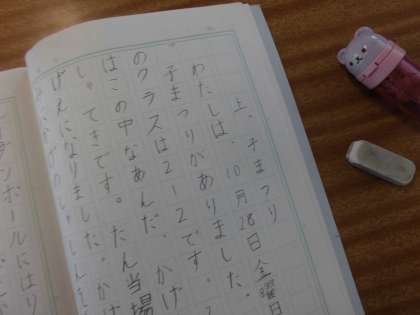 上、子まつり
わたしは、10月28日金曜日
子まつりがありました。
のクラスは2-2です。
はこの中なあんだ、かけ
し。てきです。たん当場
げえになりました。かけ
ンボールにはり